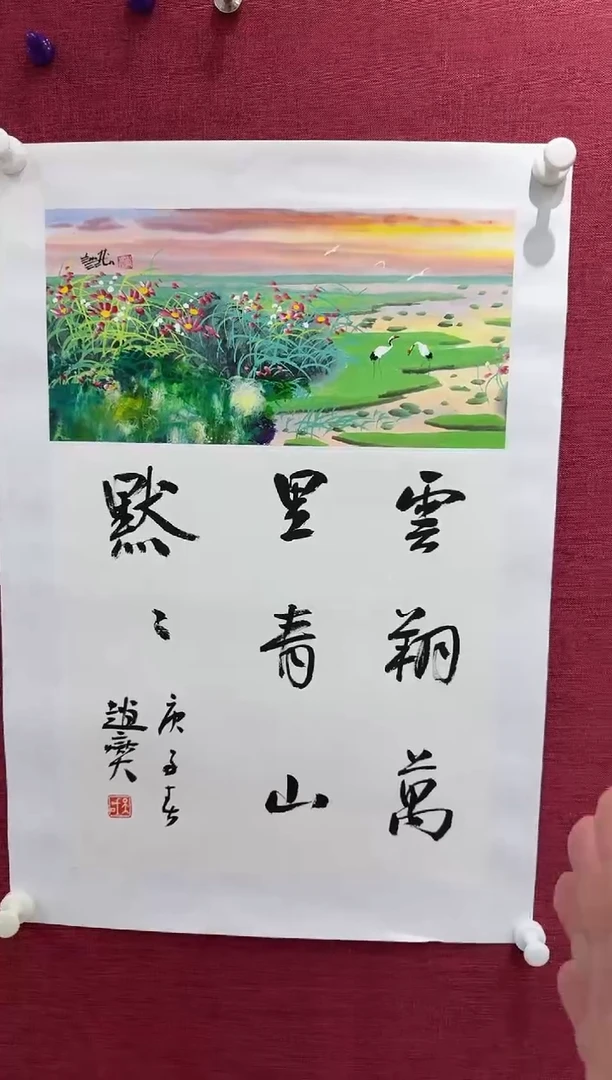 雲翔萬
里青山
默〻
庚子春
趙奕